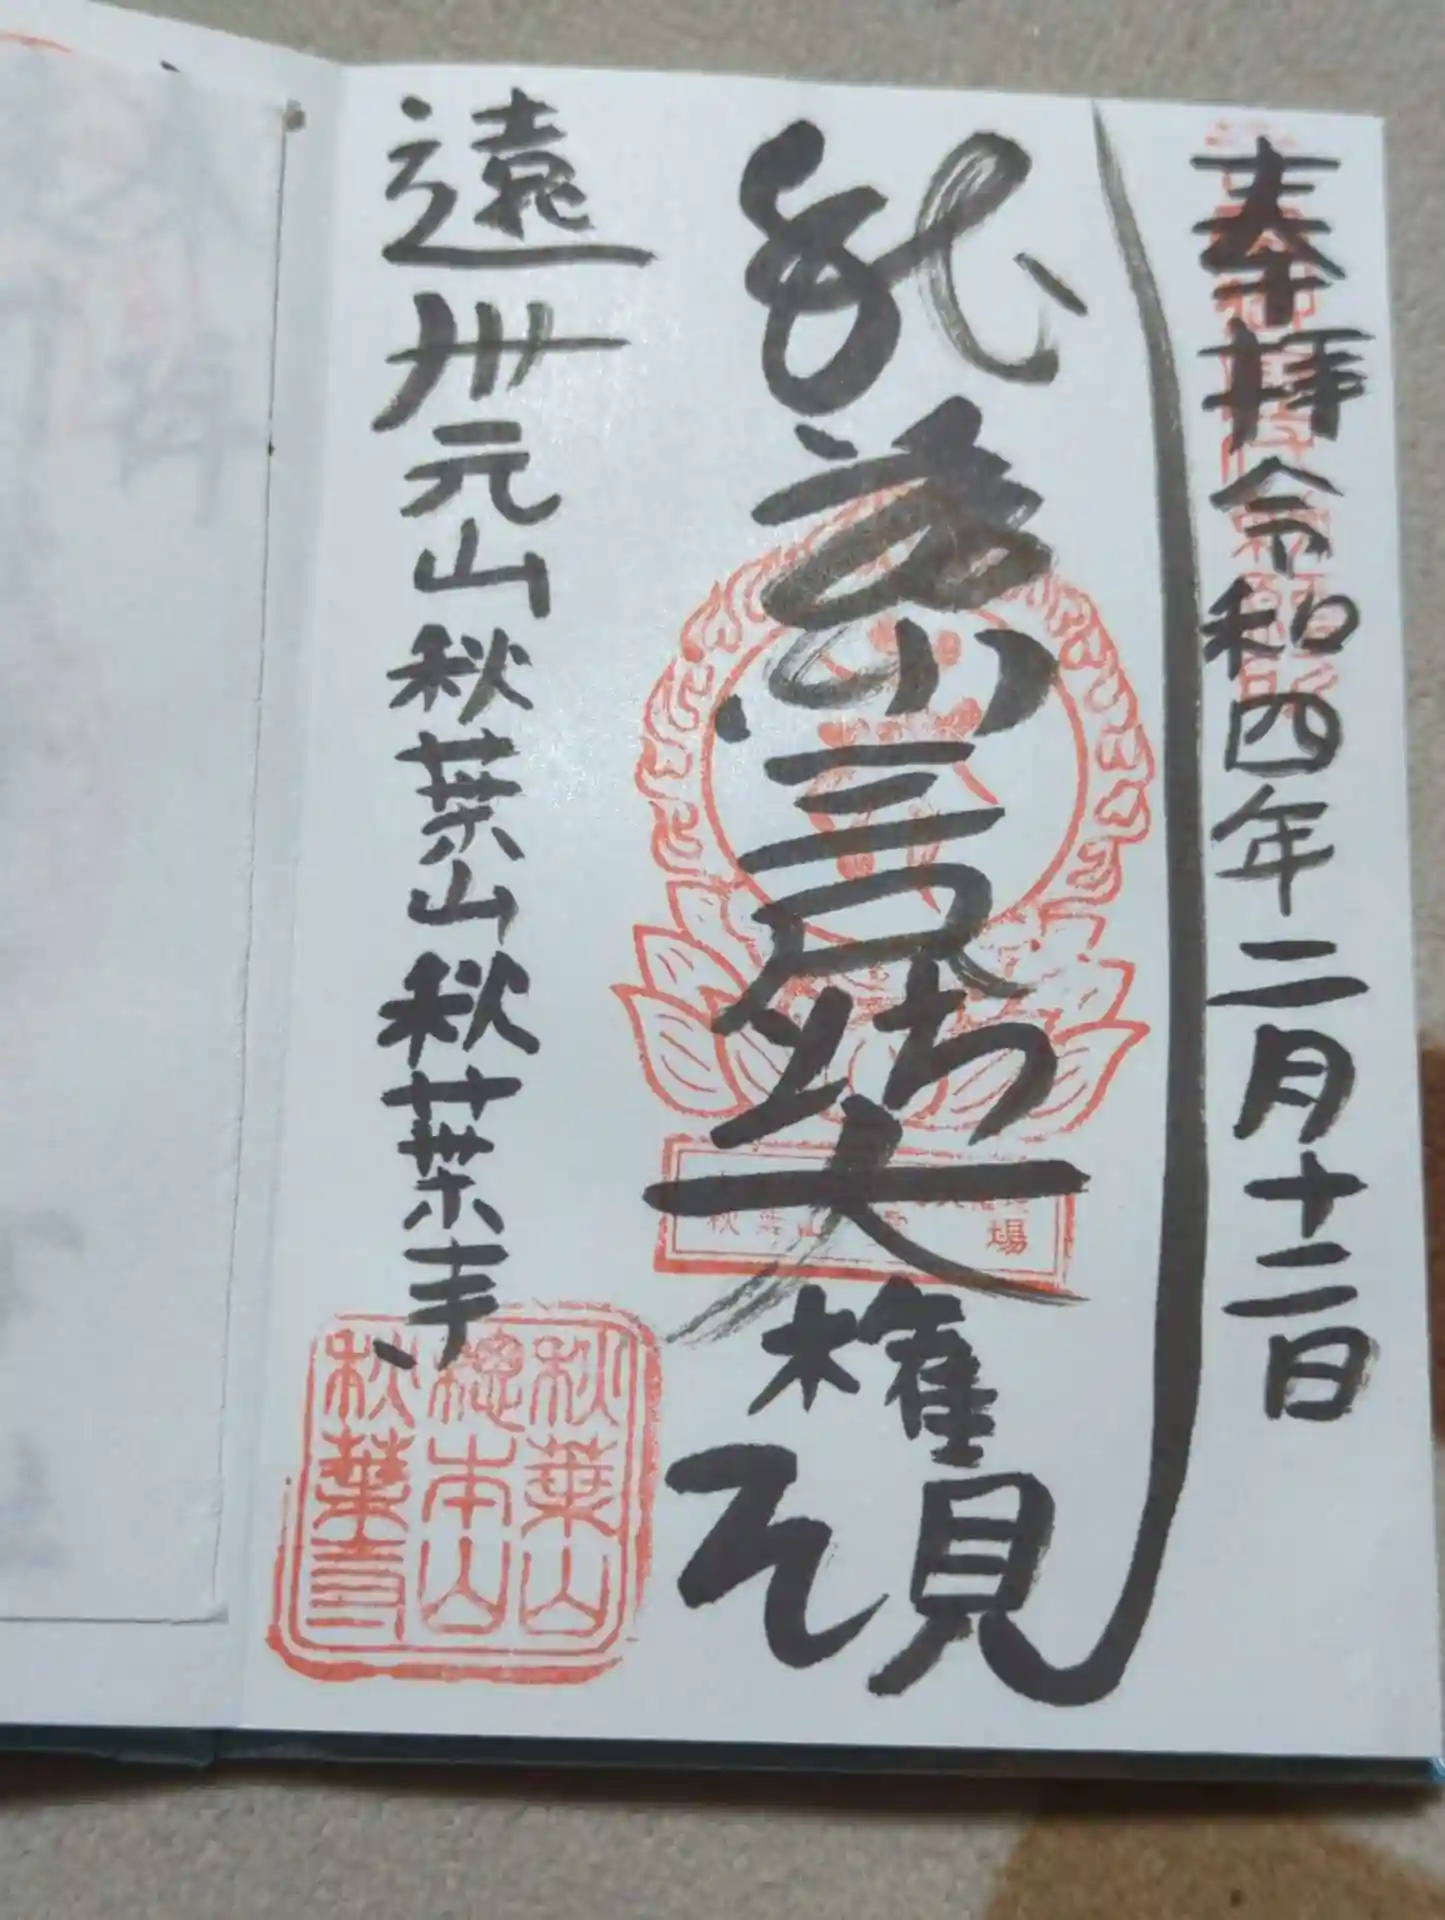 奉拝 令和四年二月十二日
三尺坊大権現
遠州元山秋葉山秋葉寺
秋葉山
總本山
秋葉寺